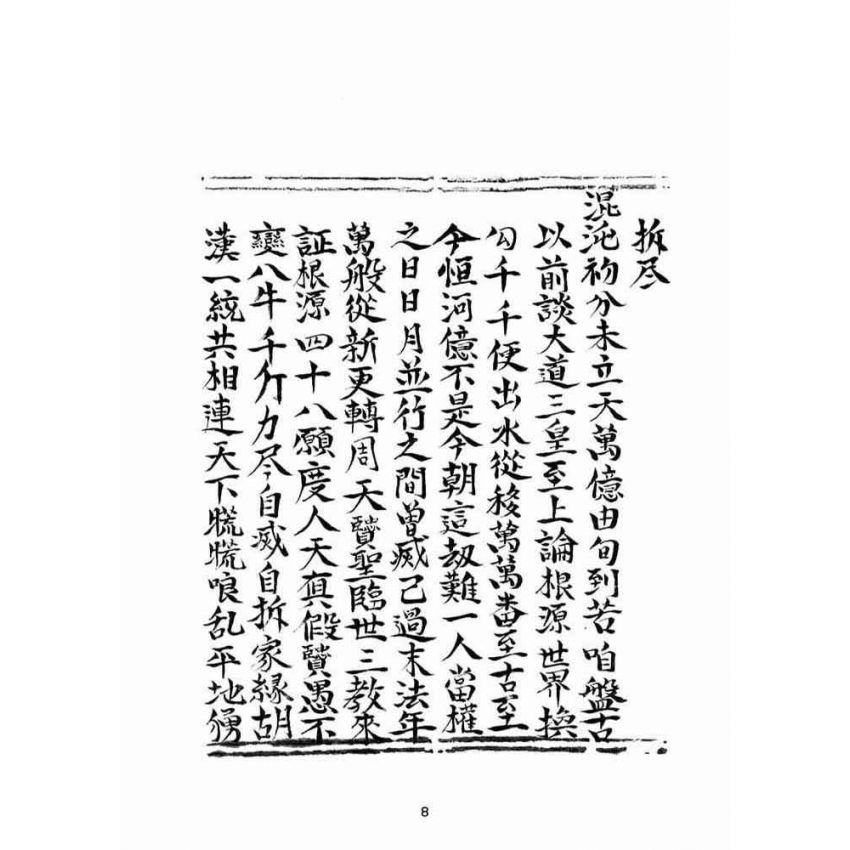 拆尽
混沌初分未立天萬億由旬到若咱盤古
以前談大道三皇至上論根源世界換
勾千千便出水從移萬萬番至古至
今恒河億不是今朝這刼難一人當權
之日日月並行之間曾烕己過末法年
萬般從新更轉周天賢聖臨世三教來
証根源四十八願度人天真假賢愚不
變八牛千斤力尽自烕自拆家緣胡
漢一統共相連天下慌慌哴乱平地
8